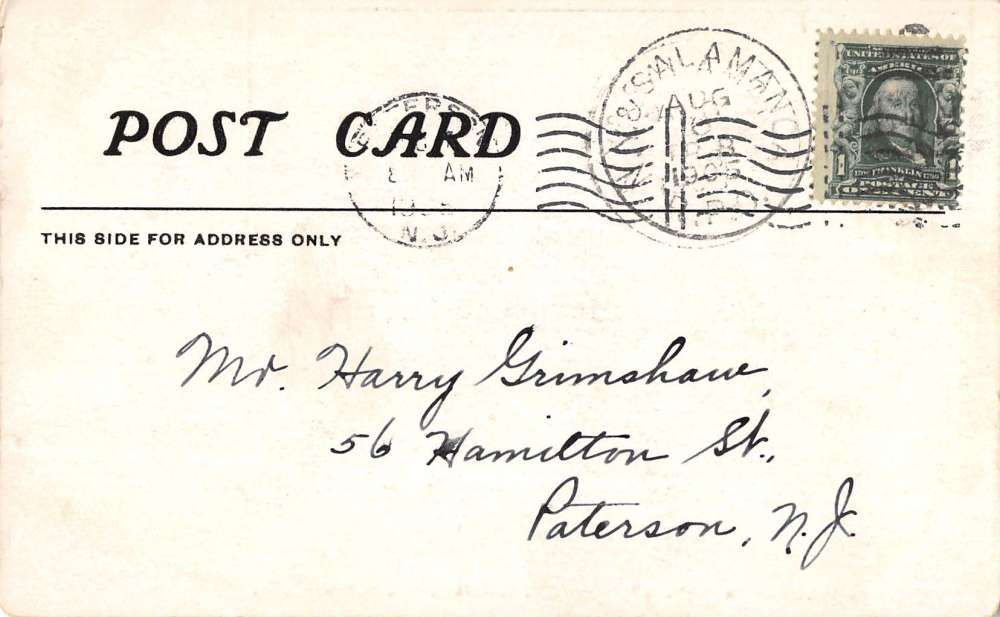 POST CARD
THIS SIDE FOR ADDRESS ONLY
N.Y. & SALAMANCA
AUG
R.P.O.
AM
N.J.
UNITED STATES OF
AMERICA
1706 FRANKLIN 1790
POSTAGE
ONE CENT
Mr. Harry Grimshaw,
56 Hamilton St.,
Paterson, N.J.